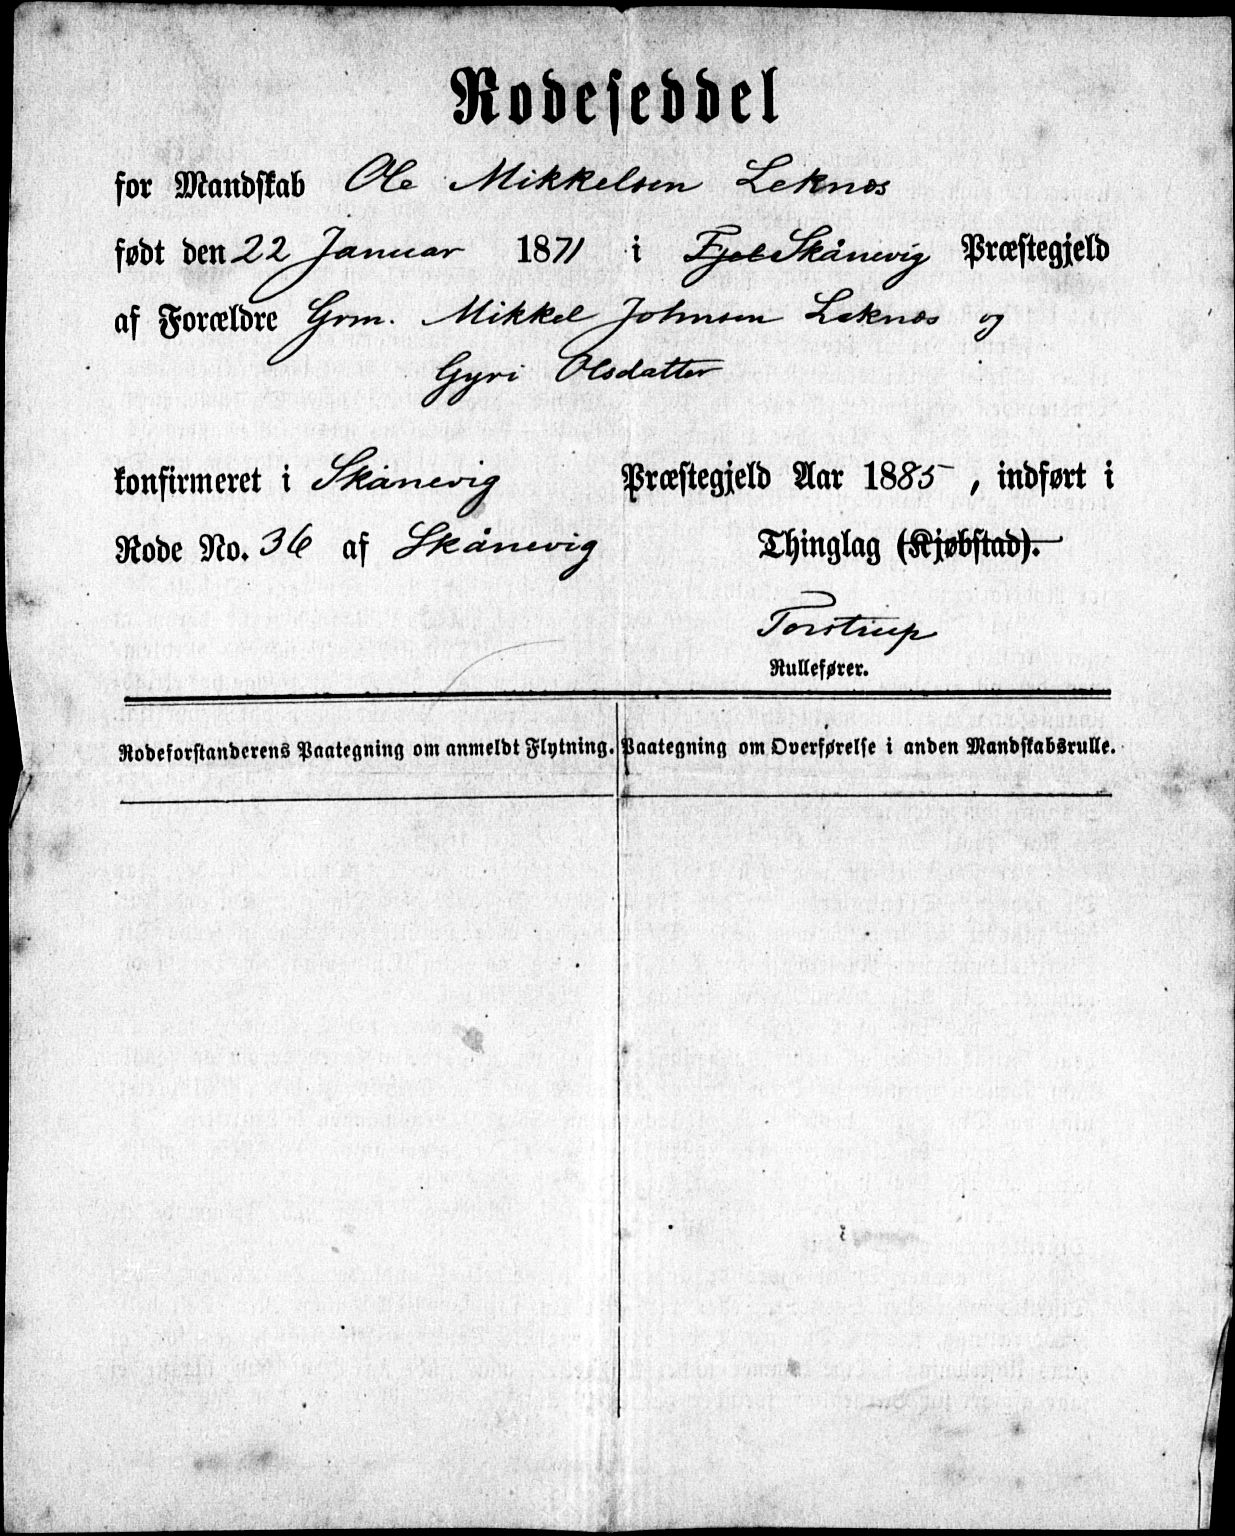 Rodeseddel
for Mandskab Ole Mikkelsen Leknes
født den 22 Januar 1871 i Skånevig Præstegjeld
af Forældre Grm. Mikkel Johnsen Leknes og
Gyri Olsdatter
konfirmeret i Skånevig Præstegjeld Aar 1885, indført i
Rode No. 36 af Skånevig Thinglag (Kjøbstad).
Torstrup
Rullefører.
Rodeforstanderens Paategning om anmeldt Flytning. Paategning om Overførelse i anden Mandskabsrulle.